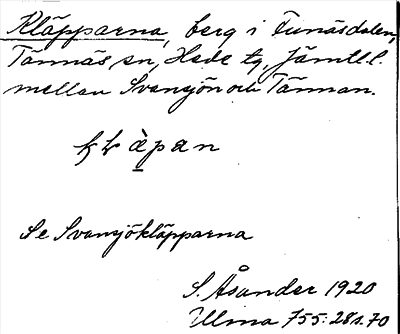 Kläpparna, berg i Funäsdalen,
Tännäs sn, Hede tg, Jämtl. l.
mellan Svansjön och Tännan.
Se Svansjökläpparna
S. Åsander 1920
Ullma 755: 281. 70